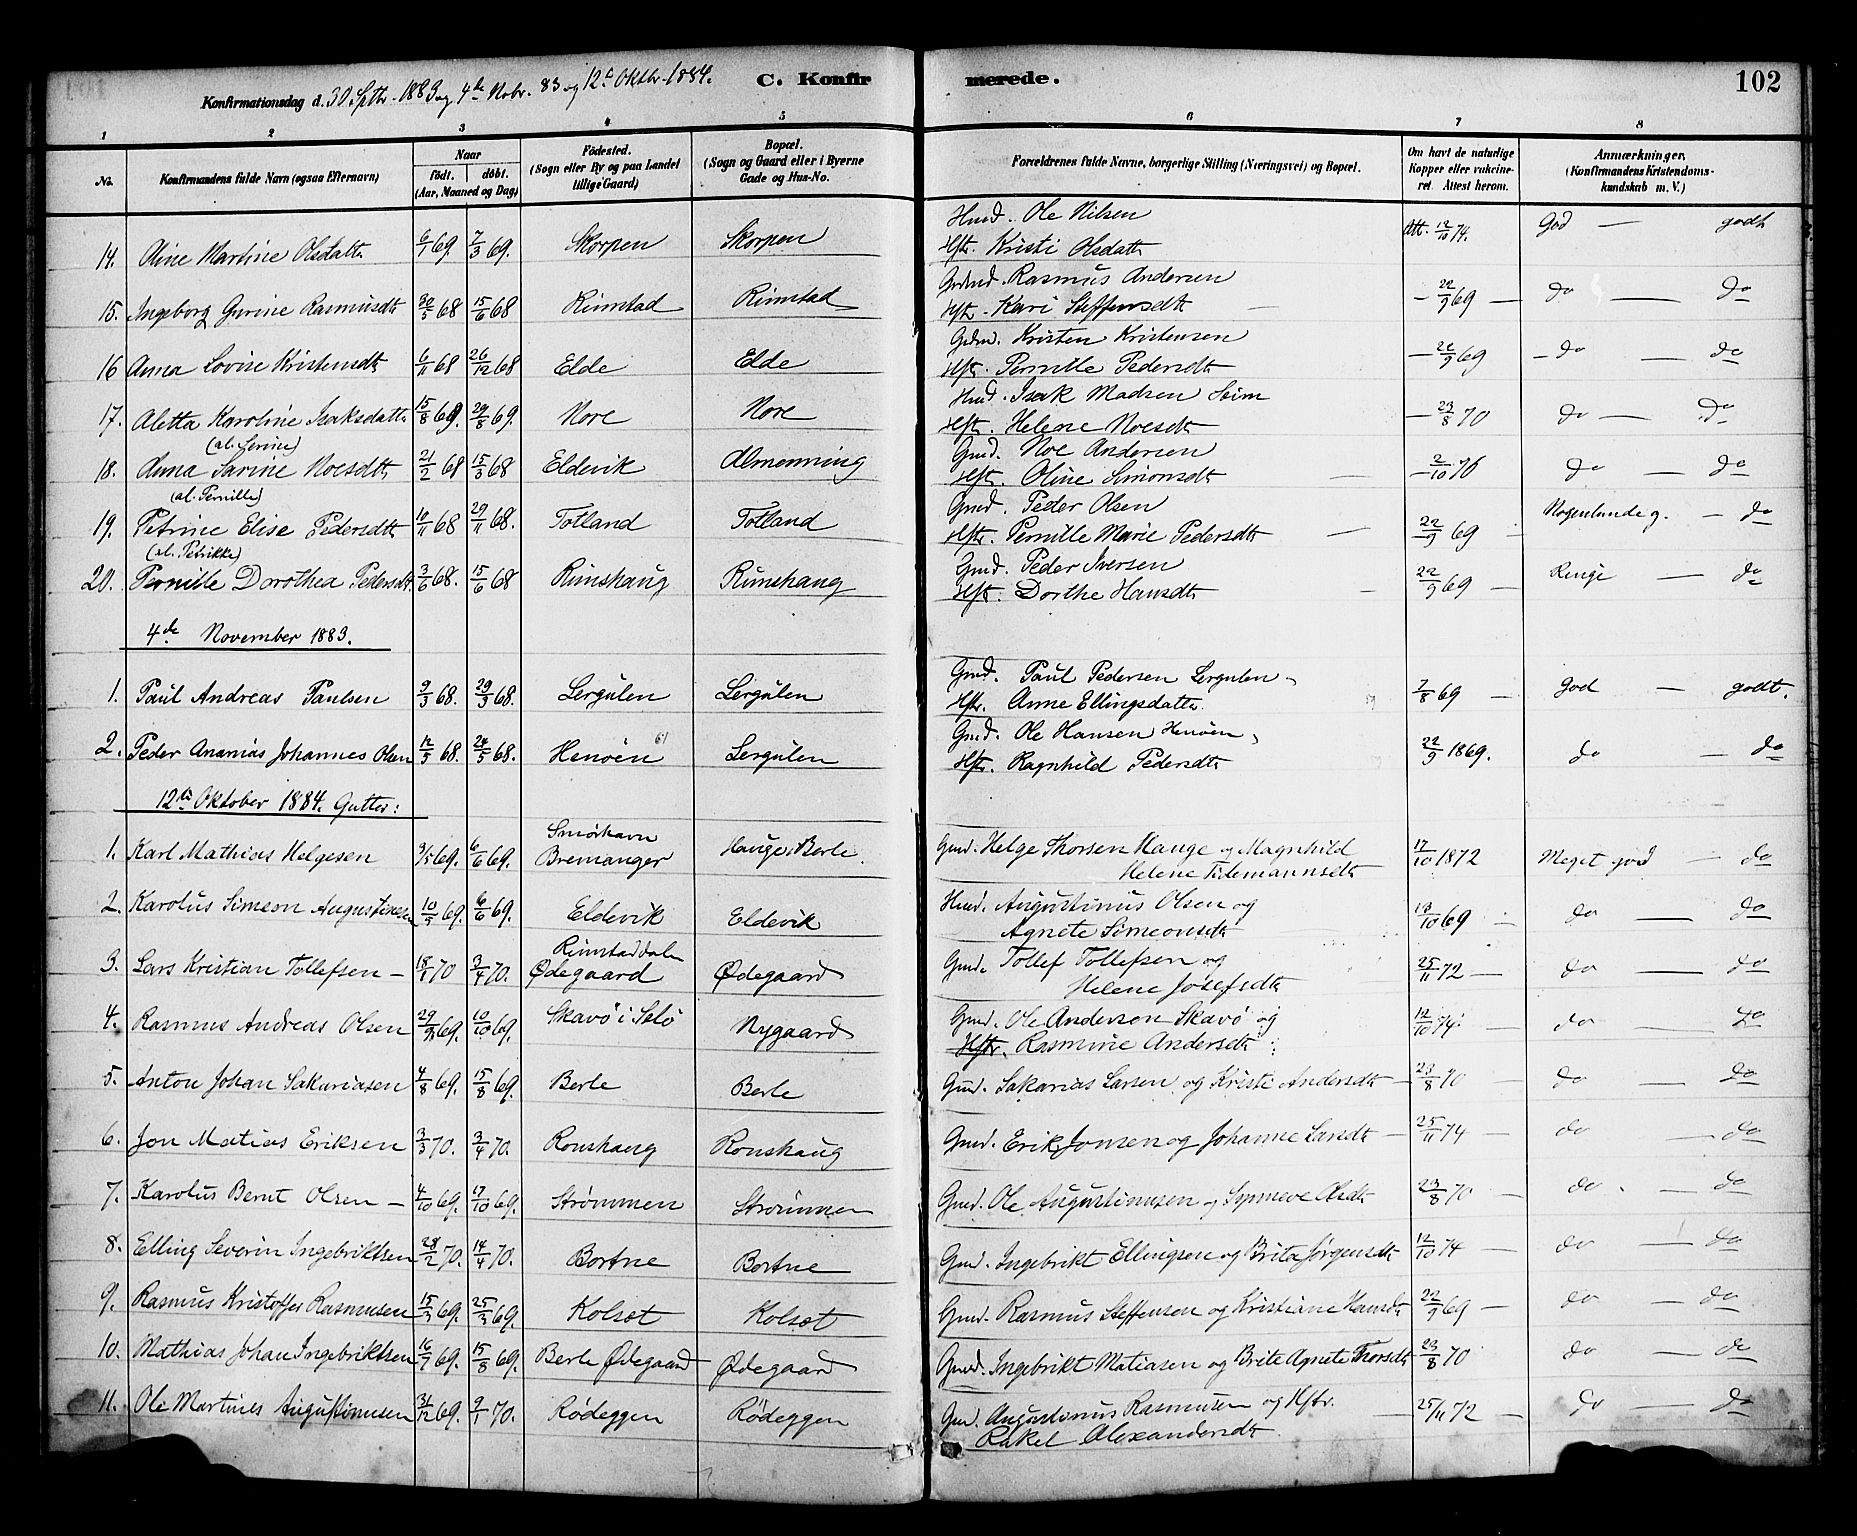 Konfirmationsdag d. 30 Sptbr. 1883 og 4de Nobr. 83 og 12te Oktbr. 1884. C. Konfirmerede. 102
1 2 3 4 5 6 7 8
No. Konfirmandens fulde Navn (ogsaa Efternavn) Naar født. døbt. (Aar, Maaned og Dag) Födested. (Sogn eller By og paa Landet tillige Gaard) Bopæl. (Sogn og Gaard eller i Byerne Gade og Hus-No. Forældrenes fulde Navne, borgerlige Stilling (Næringsvei) og Bopæl. Om havt de naturlige Kopper eller vaccineret. Attest herom. Anmærkninger, (Konfirmandens Kristendomskundskab m. V.)
14. Oline Martine Olsdattr 6/1 69. 7/3 69. Skorpen Skorpen Husd. Ole Nilsen Att. 12/10 74. God — godt
Hstr. Kristi Olsdattr
15. Ingeborg Gurine Rasmusdtr 30/5 68 15/6 68 Rimstad Rimstad Gaardmd. Rasmus Andersen — 22/9 69 — do — do
Hstr. Kari Steffensdtr
16 Anna Lovise Kristensdtr 6/11 68 26/12 68 Elde Elde Grdmd. Kristen Kristensen — 22/9 69 — do — do
Hstr. Pernille Pedersdtr
17. Aletta Karoline Isaksdattr 15/8 69. 29/8 69. Nore Nore Husd. Isak Madsen Seim — 23/8 70 do — do
Hstr. Helene Noesdtr
(al. Serine)
18. Anna Sarine Noesdtr 21/2 68 15/3 68 Eldevik Almenning Gmd. Noe Andersen — 2/10 76 do — do
Hstr. Oline Simonsdtr
(al. Pernille)
19. Petrine Elise Pedersdtr 10/11 68 29/11 68. Totland Totland Gmd. Peder Olsen 22/9 69 — Nogenlunde g. — do
Hstr. Pernille Marie Pedersdtr
(al. Petrikke)
20. Pernille Dorothea Pedersdtr 3/6 68. 15/6 68 Rimshaug Rimshaug Gmd. Peder Iversen 22/9 69 — Ringe — do
Hstr. Dorthe Hansdtr
4de November 1883.
1. Paul Andreas Paulsen 9/3 68. 29/3 68. Lergulen Lergulen Gmd. Paul Pedersen Lergulen 7/8 69 — God — godt.
Hstr. Anne Ellingsdattr
2. Peder Ananias Johannes Olsen 12/5 68. 24/5 68. Henøen Lergulen Gmd. Ole Hansen Henøen 22/9 1869. do — do
Hstr. Ragnhild Pedersdtr
12te Oktober 1884. Gutter:
1. Karl Mathias Helgesen 3/5 69. 6/6 69. Smørhavn Bremanger Hauge, Berle. Gmd. Helge Thorsen Hauge og Magnhild 17/10 1872 Meget god — do
Helene Tidemannsdtr
2. Karolus Simeon Augustinesen 10/5 69. 6/6 69. Eldevik Eldevik Husd. Augustinus Olsen og 19/10 69 do — do
Agnete Simeonsdtr
3. Lars Kristian Tollefsen — 18/1 70 3/4 70. Rimstaddalen Ødegaard Ødegaard Gmd. Tollef Tollefsen og 25/11 72 — do — do
Helene Josefsdtr
4. Rasmus Andreas Olsen 29/9 69. 10/10 69. Skavø i Selø Nygaard Gmd. Ole Andersen Skavø og 12/10 74. do — do
Hstr. Rasmine Andersdtr
5. Anton Johan Sakariasen 4/8 69. 15/8 69. Berle Berle Gmd. Sakarias Larsen og Kristi Andersdtr — 23/8 70 do — do
6. Jon Matias Eriksen 3/3 70. 3/4 70. Ronshaug Ronshaug Gmd. Erik Jonsen og Johanne Larsdtr — 25/11 74 do — do
7. Karolus Bernt Olsen — 4/10 69. 17/10 69. Strømmen Strømmen Gmd. Ole Augustinusen og Synneve Olsdtr 23/8 70 — do. — do
8. Elling Severin Ingebriktsen 28/2 70. 14/4 70. Bortne Bortne Gmd. Ingebrikt Ellingsen og Brita Jørgensdtr 12/10 74 — do — do
9. Rasmus Kristoffer Rasmusen 15/3 69. 25/3 69. Kolset Kolset Gmd. Rasmus Steffensen og Kristiane Hansdtr 22/9 69 — do — do
10. Mathias Johan Ingebriktsen 16/7 69. 15/8 69. Berle Ødegaard Ødegaard Gmd. Ingebrikt Matiasen og Brite Agnete Thorsdtr 23/8 70 do — do
11. Ole Martines Augustinusen 31/12 69. 9/1 70. Rødeggen Rødeggen Gmd. Augustinus Rasmusen og Hstr. 25/11 72 — do — do
Rakel Alexandersdtr